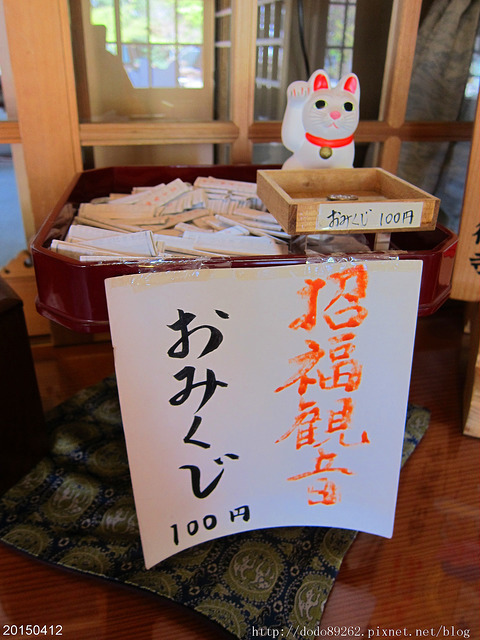 おみくじ 100円
招福観音
おみくじ
100円
20150412
http://dodo89262.pixnet.net/blog